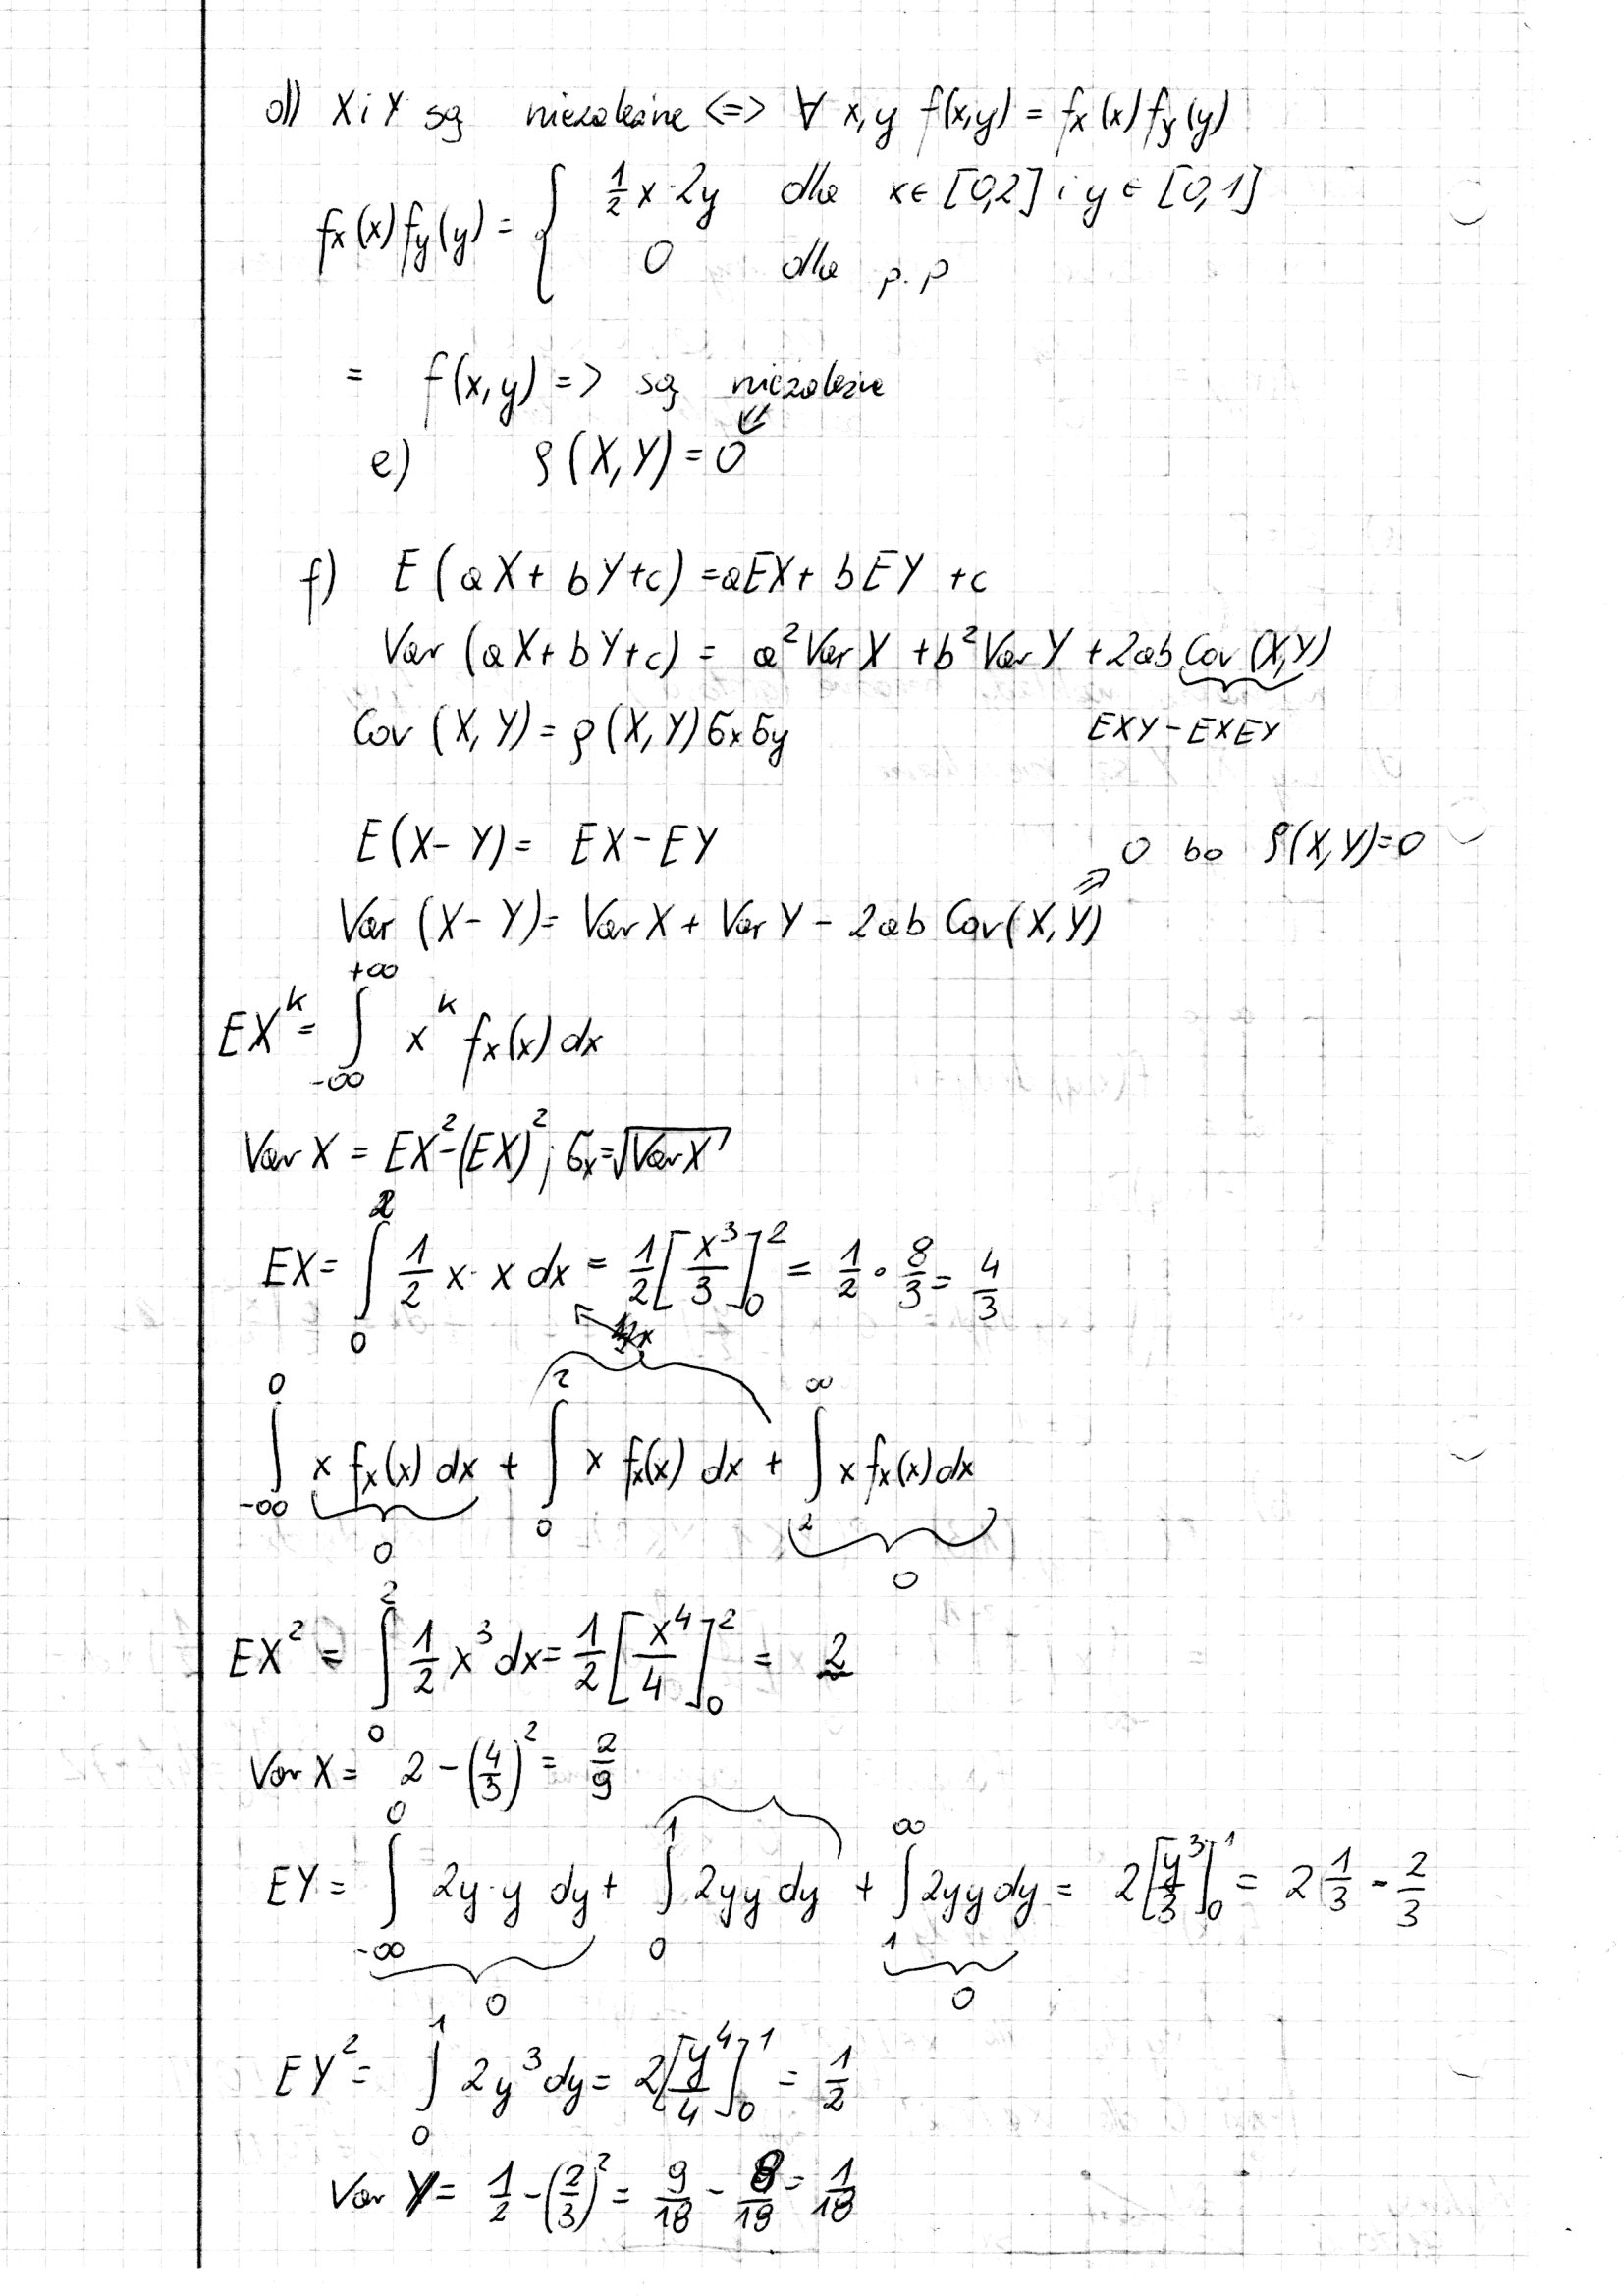 d) X i Y są niezależne <=> ∀ x,y f(x,y) = fx(x) fy(y)
fx(x) fy(y) = { 1/2 x · 2y dla x ∈ [0,2] i y ∈ [0,1]
0 dla p.p
= f(x,y) => są niezależne
e) ρ(X,Y) = 0
f) E(aX + bY + c) = aEX + bEY + c
Var(aX + bY + c) = a²VarX + b²VarY + 2ab Cov(X,Y)
Cov(X,Y) = ρ(X,Y) σx σy EXY - EXEY
E(X-Y) = EX - EY 0 bo ρ(X,Y)=0
Var(X-Y) = VarX + VarY - 2ab Cov(X,Y)
EX^k = ∫_{-∞}^{+∞} x^k fx(x) dx
VarX = EX² - (EX)² ; σx = √VarX
EX = ∫_0^2 1/2 x · x dx = 1/2 [x³/3]_0^2 = 1/2 · 8/3 = 4/3
∫_{-∞}^0 x fx(x) dx + ∫_0^2 x fx(x) dx + ∫_2^∞ x fx(x) dx
0 0
EX² = ∫_0^2 1/2 x³ dx = 1/2 [x⁴/4]_0^2 = 2
VarX = 2 - (4/3)² = 2/9
EY = ∫_{-∞}^0 2y·y dy + ∫_0^1 2yy dy + ∫_1^∞ 2yy dy = 2[y³/3]_0^1 = 2 1/3 - 2/3
0 0
EY² = ∫_0^1 2y³ dy = 2[y⁴/4]_0^1 = 1/2
Var Y = 1/2 - (2/3)² = 9/18 - 8/18 = 1/18